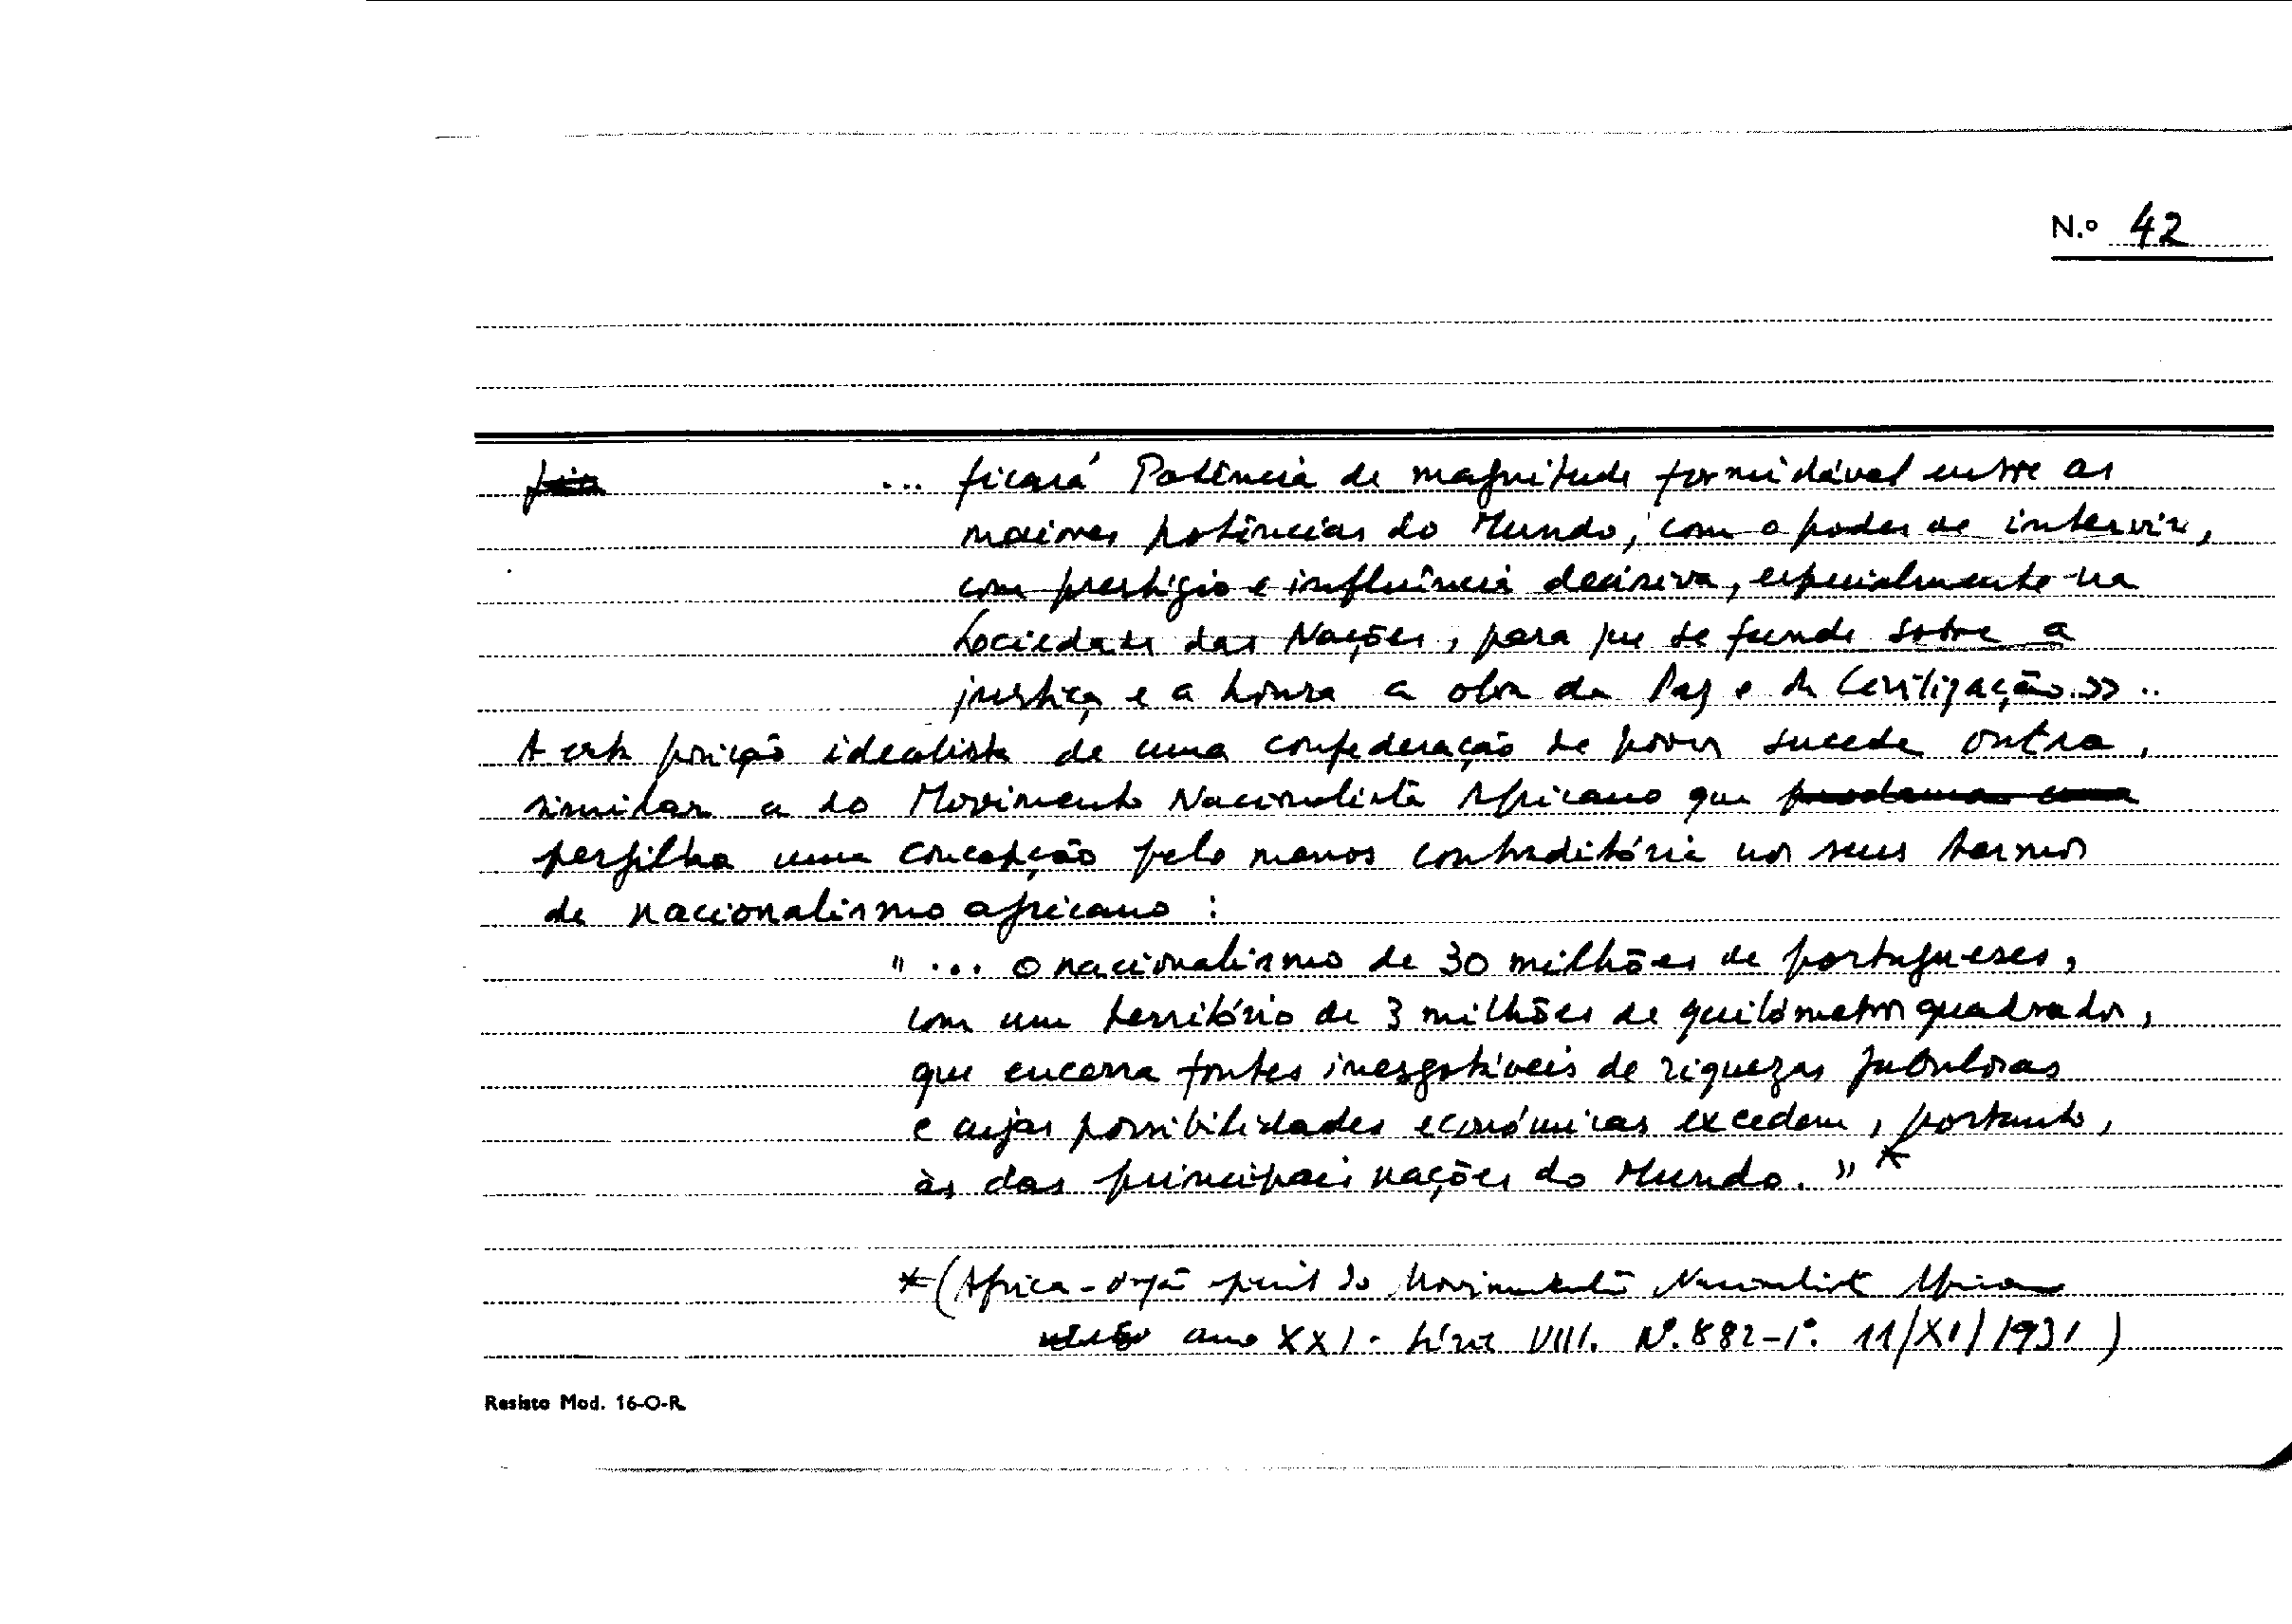 N.º 42
... ficará Potência de magnitude formidável entre as
maiores potências do Mundo, com o poder de intervir,
com prestígio e influência decisiva, especialmente na
Sociedade das Nações, para que se funde sobre a
justiça e a honra a obra da Paz e da Civilização.>> ..
A esta posição idealista de uma confederação de povos sucede outra,
similar a do Movimento Nacionalista Africano que
perfilha uma concepção pelo menos contraditória nos seus termos
de nacionalismo africano :
" ... o nacionalismo de 30 milhões de portugueses,
com um território de 3 milhões de quilómetros quadrados,
que encerra fontes inesgotáveis de riquezas fabulosas
e cujas possibilidades económicas excedem, portanto,
às das principais nações do Mundo. " *
* (Africa - orgão do Movimento Nacionalista Africano
ano XXI - Série VIII. Nº. 882-1º. 11/XI/1931 )
Resisto Mod. 16-O-R.